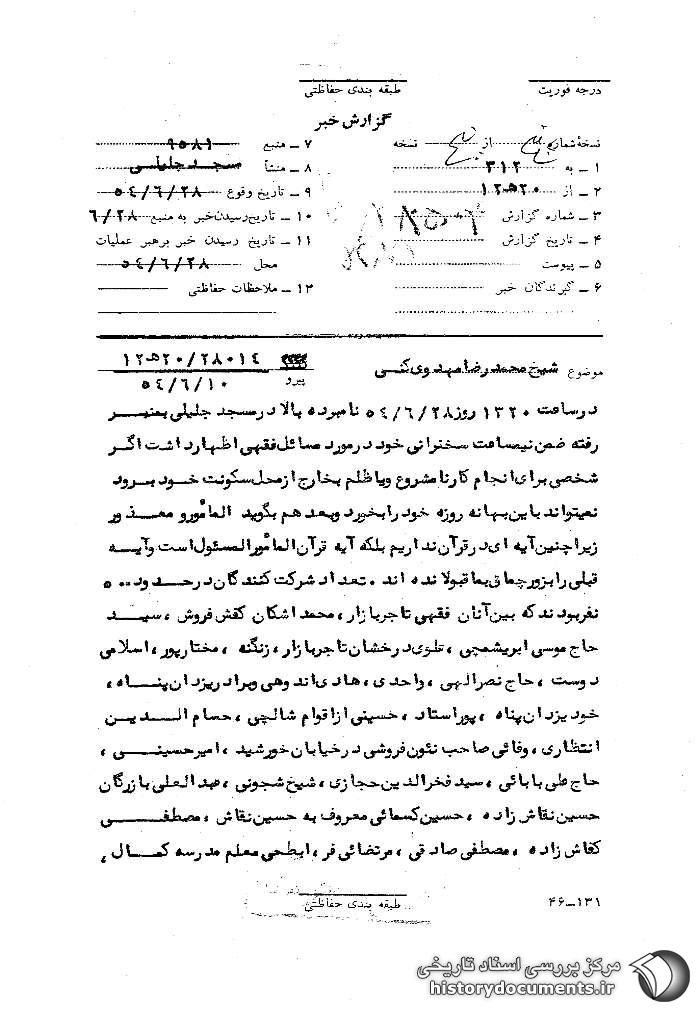 درجه فوریت
طبقه بندی حفاظتی
گزارش خبر
نسخهٔ شماره از نسخه
۱ ــ به ۳۱۲
۲ ــ از ۲۰ ه‍ ۱۲
۳ ــ شماره گزارش
۴ ــ تاریخ گزارش
۵ ــ پیوست
۶ ــ گیرندگان خبر
۷ ــ منبع ۹۵۸۱
۸ ــ منشأ مسجد جلیلی
۹ ــ تاریخ وقوع ۵۴/۶/۲۸
۱۰ ــ تاریخ رسیدن خبر به منبع ۶/۲۸
۱۱ ــ تاریخ رسیدن خبر برهبر عملیات
محل ۵۴/۶/۲۸
۱۲ ــ ملاحظات حفاظتی
موضوع شیخ محمد رضا مهدوی کنی
۲۸۰۱۴/۲۰ ه‍ ۱۲
پیرو ۵۴/۶/۱۰
در ساعت ۱۳۲۰ روز ۵۴/۶/۲۸ نامبرده بالا در مسجد جلیلی بمنبر
رفته ضمن نیمساعت سخنرانی خود در مورد مسائل فقهی اظهار داشت اگر
شخصی برای انجام کار نا مشروع و یا ظلم بخارج از محل سکونت خود برود
نمیتواند باین بهانه روزه خود را بخورد وبعد هم بگوید المأمور و معذور
زیرا چنین آیه ای در قرآن نداریم بلکه آیه قرآن المأمور المسئول است و آیه
قبلی را بزور چماق بما قبولانده اند . تعداد شرکت کنندگان در حدود ۵۰۰
نفر بودند که بین آنان فقهی تاجر بازار ، محمد اشکان کفش فروش ، سید
حاج موسی ابریشمچی ، تقوی درخشان تاجر بازار ، زنگنه ، مختارپور ، اسلامی
دوست ، حاج نصرالهی ، واحدی ، هادی اندوهی و برادر یزدان پناه ،
خود یزدان پناه ، پوراستاد ، حسینی از اقوام شالچی ، حسام الدین
انتظاری ، وفائی صاحب نئون فروشی در خیابان خورشید ، امیرحسینی ،
حاج علی بابائی ، سید فخرالدین حجازی ، شیخ شجونی ، عبدالعلی بازرگان
حسین نقاش زاده ، حسین کسمائی معروف به حسین نقاش ، مصطفی
کفاش زاده ، مصطفی صادقی ، مرتضائی فر ، ابطحی معلم مدرسه کمال ،
طبقه بندی حفاظتی
۱۳۱ــ۴۶
مرکز بررسی اسناد تاریخی
historydocuments.ir